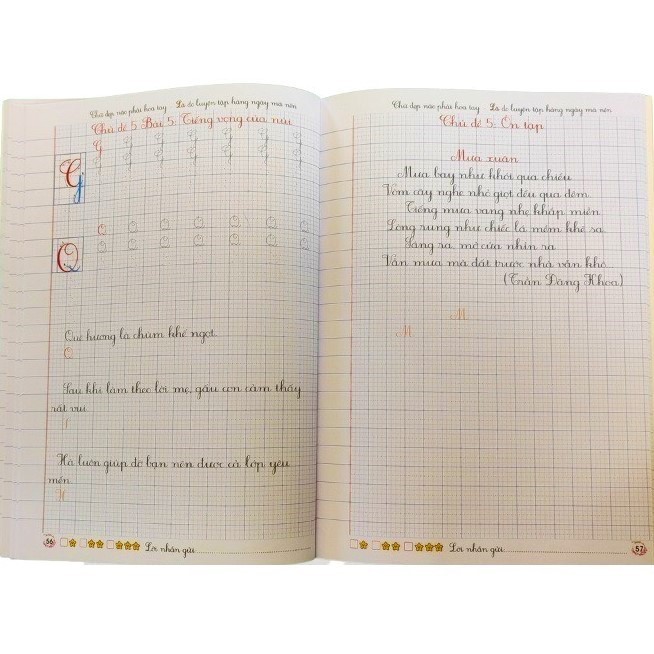 Chữ đẹp nào phải hoa tay Là do luyện tập hàng ngày mà nên
Chủ đề 5 Bài 5: Tiếng vọng của núi
G
G
Q
Q
Quê hương là chùm khế ngọt.
Q
Sau khi làm theo lời mẹ, gấu con cảm thấy
rất vui.
Hà luôn giúp đỡ bạn nên được cả lớp yêu
mến.
H
56
Lời nhắn gửi:
Chữ đẹp nào phải hoa tay Là do luyện tập hàng ngày mà nên
Chủ đề 5: Ôn tập
Mưa xuân
Mưa bay như khói qua chiều
Vòm cây nghe nhỏ giọt đều qua đêm
Tiếng mưa vang nhẹ khắp miền
Lòng rung như chiếc lá mềm khẽ sa
Sáng ra, mở cửa nhìn ra
Vẫn mưa mà đất trước nhà vẫn khô.
(Trần Đăng Khoa)
M
M
57
Lời nhắn gửi: